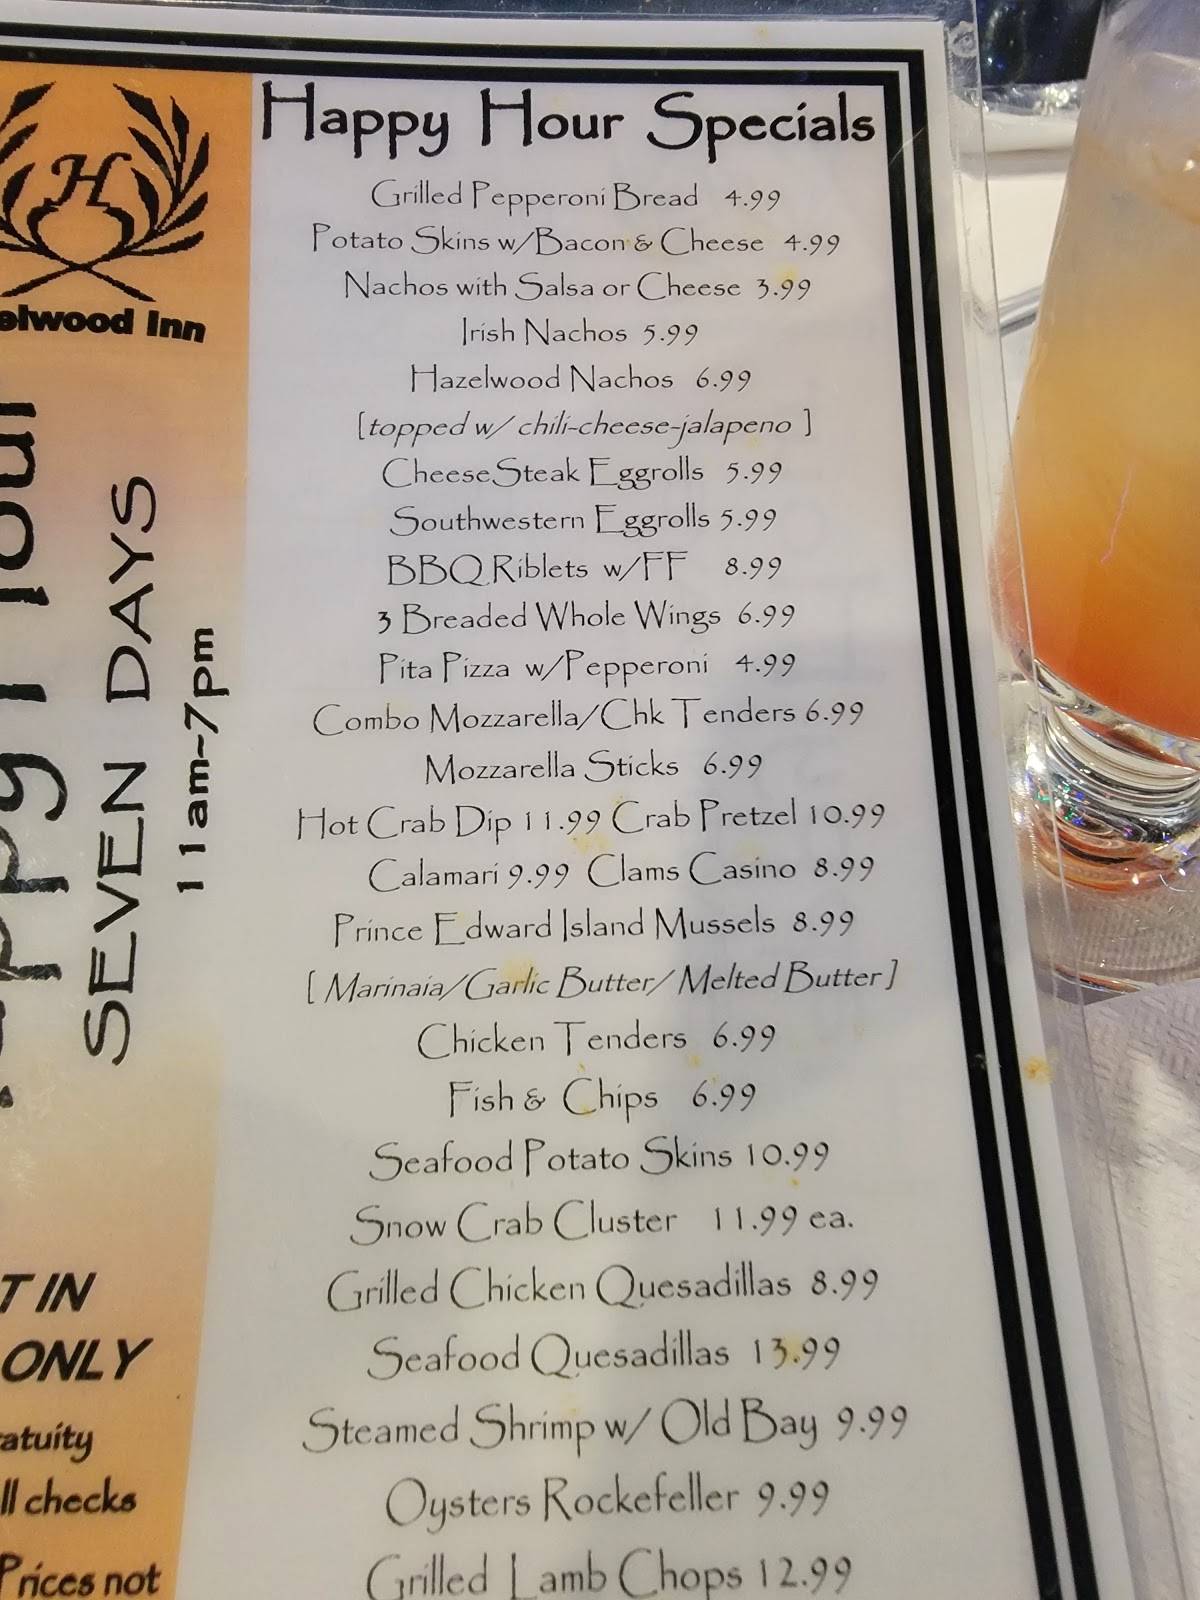 Happy Hour Specials
Grilled Pepperoni Bread 4.99
Potato Skins w/Bacon & Cheese 4.99
Nachos with Salsa or Cheese 3.99
Irish Nachos 5.99
Hazelwood Nachos 6.99
[topped w/ chili-cheese-jalapeno ]
CheeseSteak Eggrolls 5.99
Southwestern Eggrolls 5.99
BBQ Riblets w/FF 8.99
3 Breaded Whole Wings 6.99
Pita Pizza w/Pepperoni 4.99
Combo Mozzarella/Chk Tenders 6.99
Mozzarella Sticks 6.99
Hot Crab Dip 11.99 Crab Pretzel 10.99
Calamari 9.99 Clams Casino 8.99
Prince Edward Island Mussels 8.99
[ Marinaia/Garlic Butter/ Melted Butter ]
Chicken Tenders 6.99
Fish & Chips 6.99
Seafood Potato Skins 10.99
Snow Crab Cluster 11.99 ea.
Grilled Chicken Quesadillas 8.99
Seafood Quesadillas 13.99
Steamed Shrimp w/ Old Bay 9.99
Oysters Rockefeller 9.99
Grilled Lamb Chops 12.99
H
elwood Inn
SEVEN DAYS
11am~7pm
T IN
ONLY
atuity
ll checks
Prices not